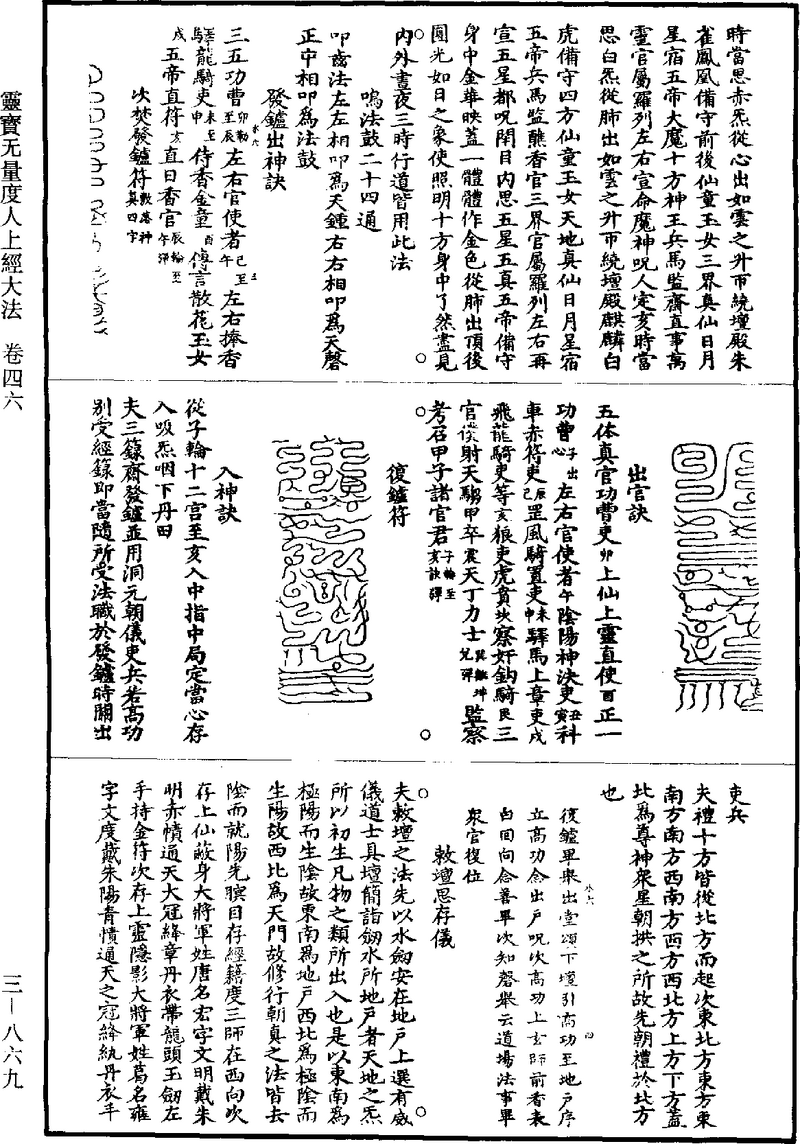 靈寶无量度人上經大法　卷四六
三—八六九
時當思赤炁從心出如雲之升帀繞壇殿朱
雀鳳凰備守前後仙童玉女三界真仙日月
星宿五帝大魔十方神王兵馬監齋直事萬
靈官屬羅列左右宣命魔神呪人定亥時當
思白炁從肺出如雲之升帀繞壇殿麒麟白
虎備守四方仙童玉女天地真仙日月星宿
五帝兵馬監醮香官三界官屬羅列左右再
宣五星都呪閉目內思五星五真五帝備守
身中金華映蓋一體體作金色從肺出頂後
圓光如日之象使照明十方身中了然盡見
內外晝夜三時行道皆用此法
鳴法鼓二十四通
叩齒法左左相叩為天鍾右右相叩為天磬
正中相叩為法鼓
發鑪出神訣
三五功曹卯勒至辰左右官使者巳至午左右捧香
驛龍騎吏未至申侍香金童酉傳言散花玉女
戌五帝直符亥直日香官辰輪至午彈
次焚發鑪符
出官訣
五体真官功曹吏卯上仙上靈直使酉正一
功曹子出心左右官使者午陰陽神決吏丑寅科
車赤符吏辰巳罡風騎置吏未申驛馬上章吏戌
飛龍騎吏等亥狼吏虎賁坎察奸鈎騎艮三
官僕射天騶甲卒震天丁力士巽離坤兌彈監察
考召甲子諸官君子輪至亥訣彈
復鑪符
入神訣
從子輪十二宮至亥入中指中局定當心存
入吸炁咽下丹田
夫三籙齋發鑪並用洞元朝儀吏兵若高功
別受經籙即當隨所受法職於發鑪時關出
吏兵
夫禮十方皆從北方而起次東北方東方東
南方南方西南方西方西北方上方下方蓋
北為尊神眾星朝拱之所故先朝禮於北方
也
復鑪畢舉出堂頌下壇引高功至地戶序
立高功念出戶呪次高功上玄師前香表
白回向念善畢次知磬舉云道場法事畢
眾官復位
敕壇思存儀
夫敕壇之法先以水劔安在地戶上選有威
儀道士具壇簡詣劔水所地戶者天地之炁
所以初生凡物之類所出入也是以東南為
極陽而生陰故東南為地戶西北為極陰而
生陽故西北為天門故修行朝真之法皆去
陰而就陽先瞑目存經籍度三師在西向次
存上仙蔽身大將軍姓唐名宏字文明戴朱
明赤幘通天大冠絳章丹衣帶龍頭玉劔左
手持金符次存上靈隱影大將軍姓葛名雍
字文度戴朱陽青幘通天之冠絳紈丹衣手